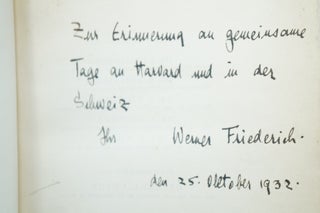 Zur Erinnerung an gemeinsame
Tage an Harvard und in der
Schweiz
Ihr Werner Friederich.
den 25. Oktober 1932.